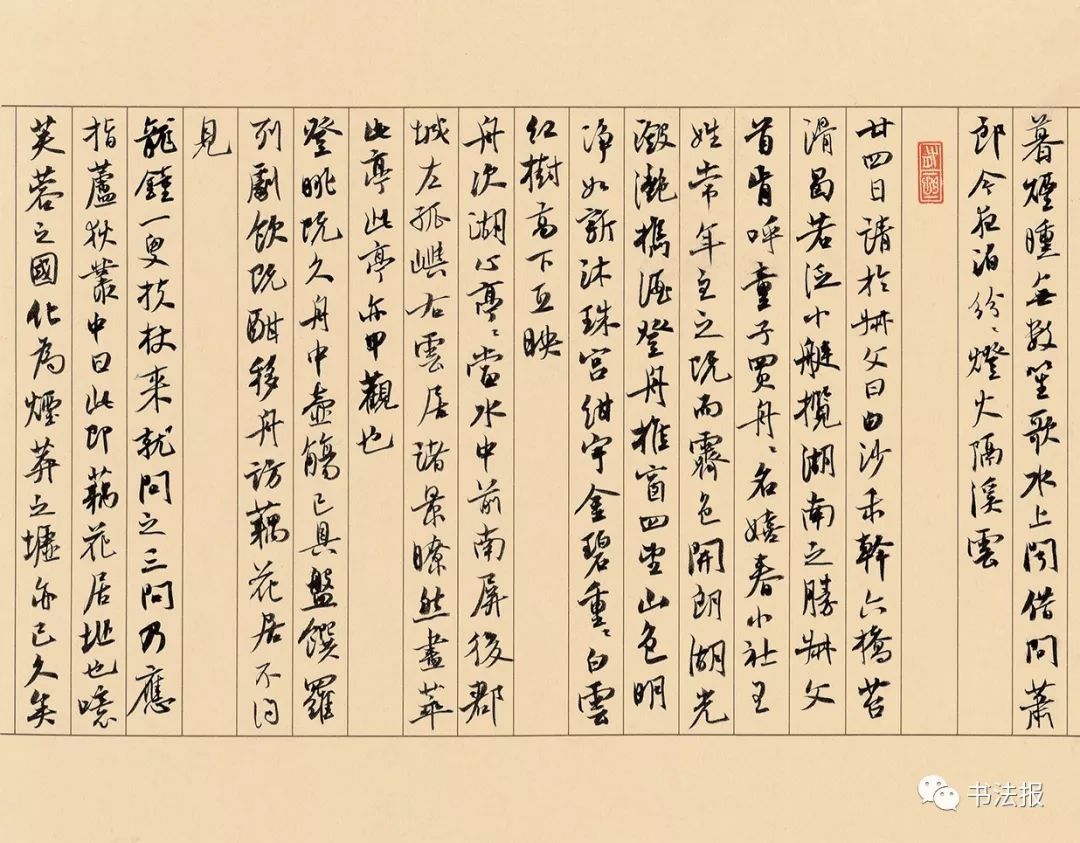 暮煙曛無數笙歌水上聞借問蕭
郎今夜泊紛〻燈火隔溪雲
廿四日請於叔父曰白沙未幹六橋苔
滑曷若泛小艇攬湖南之勝叔父
首肯呼童子買舟〻名嬉春小社王
姓常年主之既而霽色開朗湖光
瀲灔攜酒登舟推窗四望山色明
淨如新沐珠宮紺宇金碧重〻白雲
紅樹高下互映
舟次湖心亭〻當水中前南屏後郡
城左孤嶼右雲居諸景瞭然盡萃
此亭此亭亦甲觀也
登眺既久舟中壺觴已具盤饌羅
列劇飲既酣移舟訪藕花居不得
見
龍鍾一叟扶杖來就問之三問乃應
指蘆荻叢中曰此即藕花居址也噫
芙蓉之國化為煙莽之墟亦已久矣
书法报